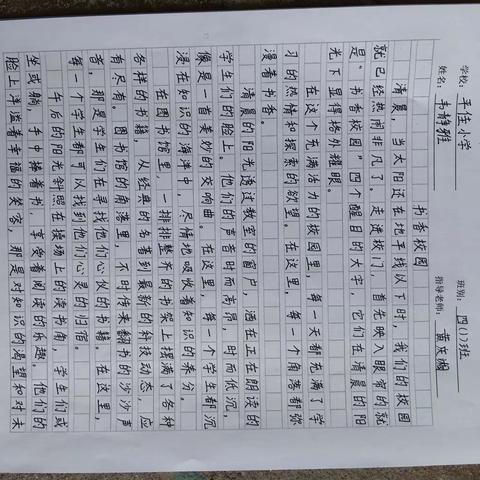 学校：平住小学 班别：四(1)班
姓名：韦静雅 指导老师：黄庆娴
书香校园
清晨，当太阳还在地平线以下时，我们的校园
就已经热闹非凡了。走进校门，首先映入眼帘的就
是“书香校园”四个醒目的大字，它们在清晨的阳
光下显得格外耀眼。
在这个充满活力的校园里，每一天都充满了学
习的热情和探索的欲望。在这里，每一个角落都弥
漫着书香。
清晨的阳光透过教室的窗户，洒在正在朗读的
学生们的脸上。他们的声音时而高昂，时而低沉，
像是一首美妙的交响曲。在这里，每一个学生都沉
浸在知识的海洋中，尽情地吸收着知识的养分。
在图书馆里，一排排整齐的书架上摆满了各种
各样的书籍，从经典的名著到最新的科技动态，应
有尽有。图书馆的角落里，不时传来翻书的沙沙声
者，那是学生们在寻找他们心仪的书籍。在这里，
每一个学生都可以找到他们心灵的归宿。
午后的阳光斜照在操场上的读书角，学生们或
坐或躺，手中捧着书，享受着阅读的乐趣。他们的
脸上洋溢着幸福的笑容，那是对知识的渴望和对未